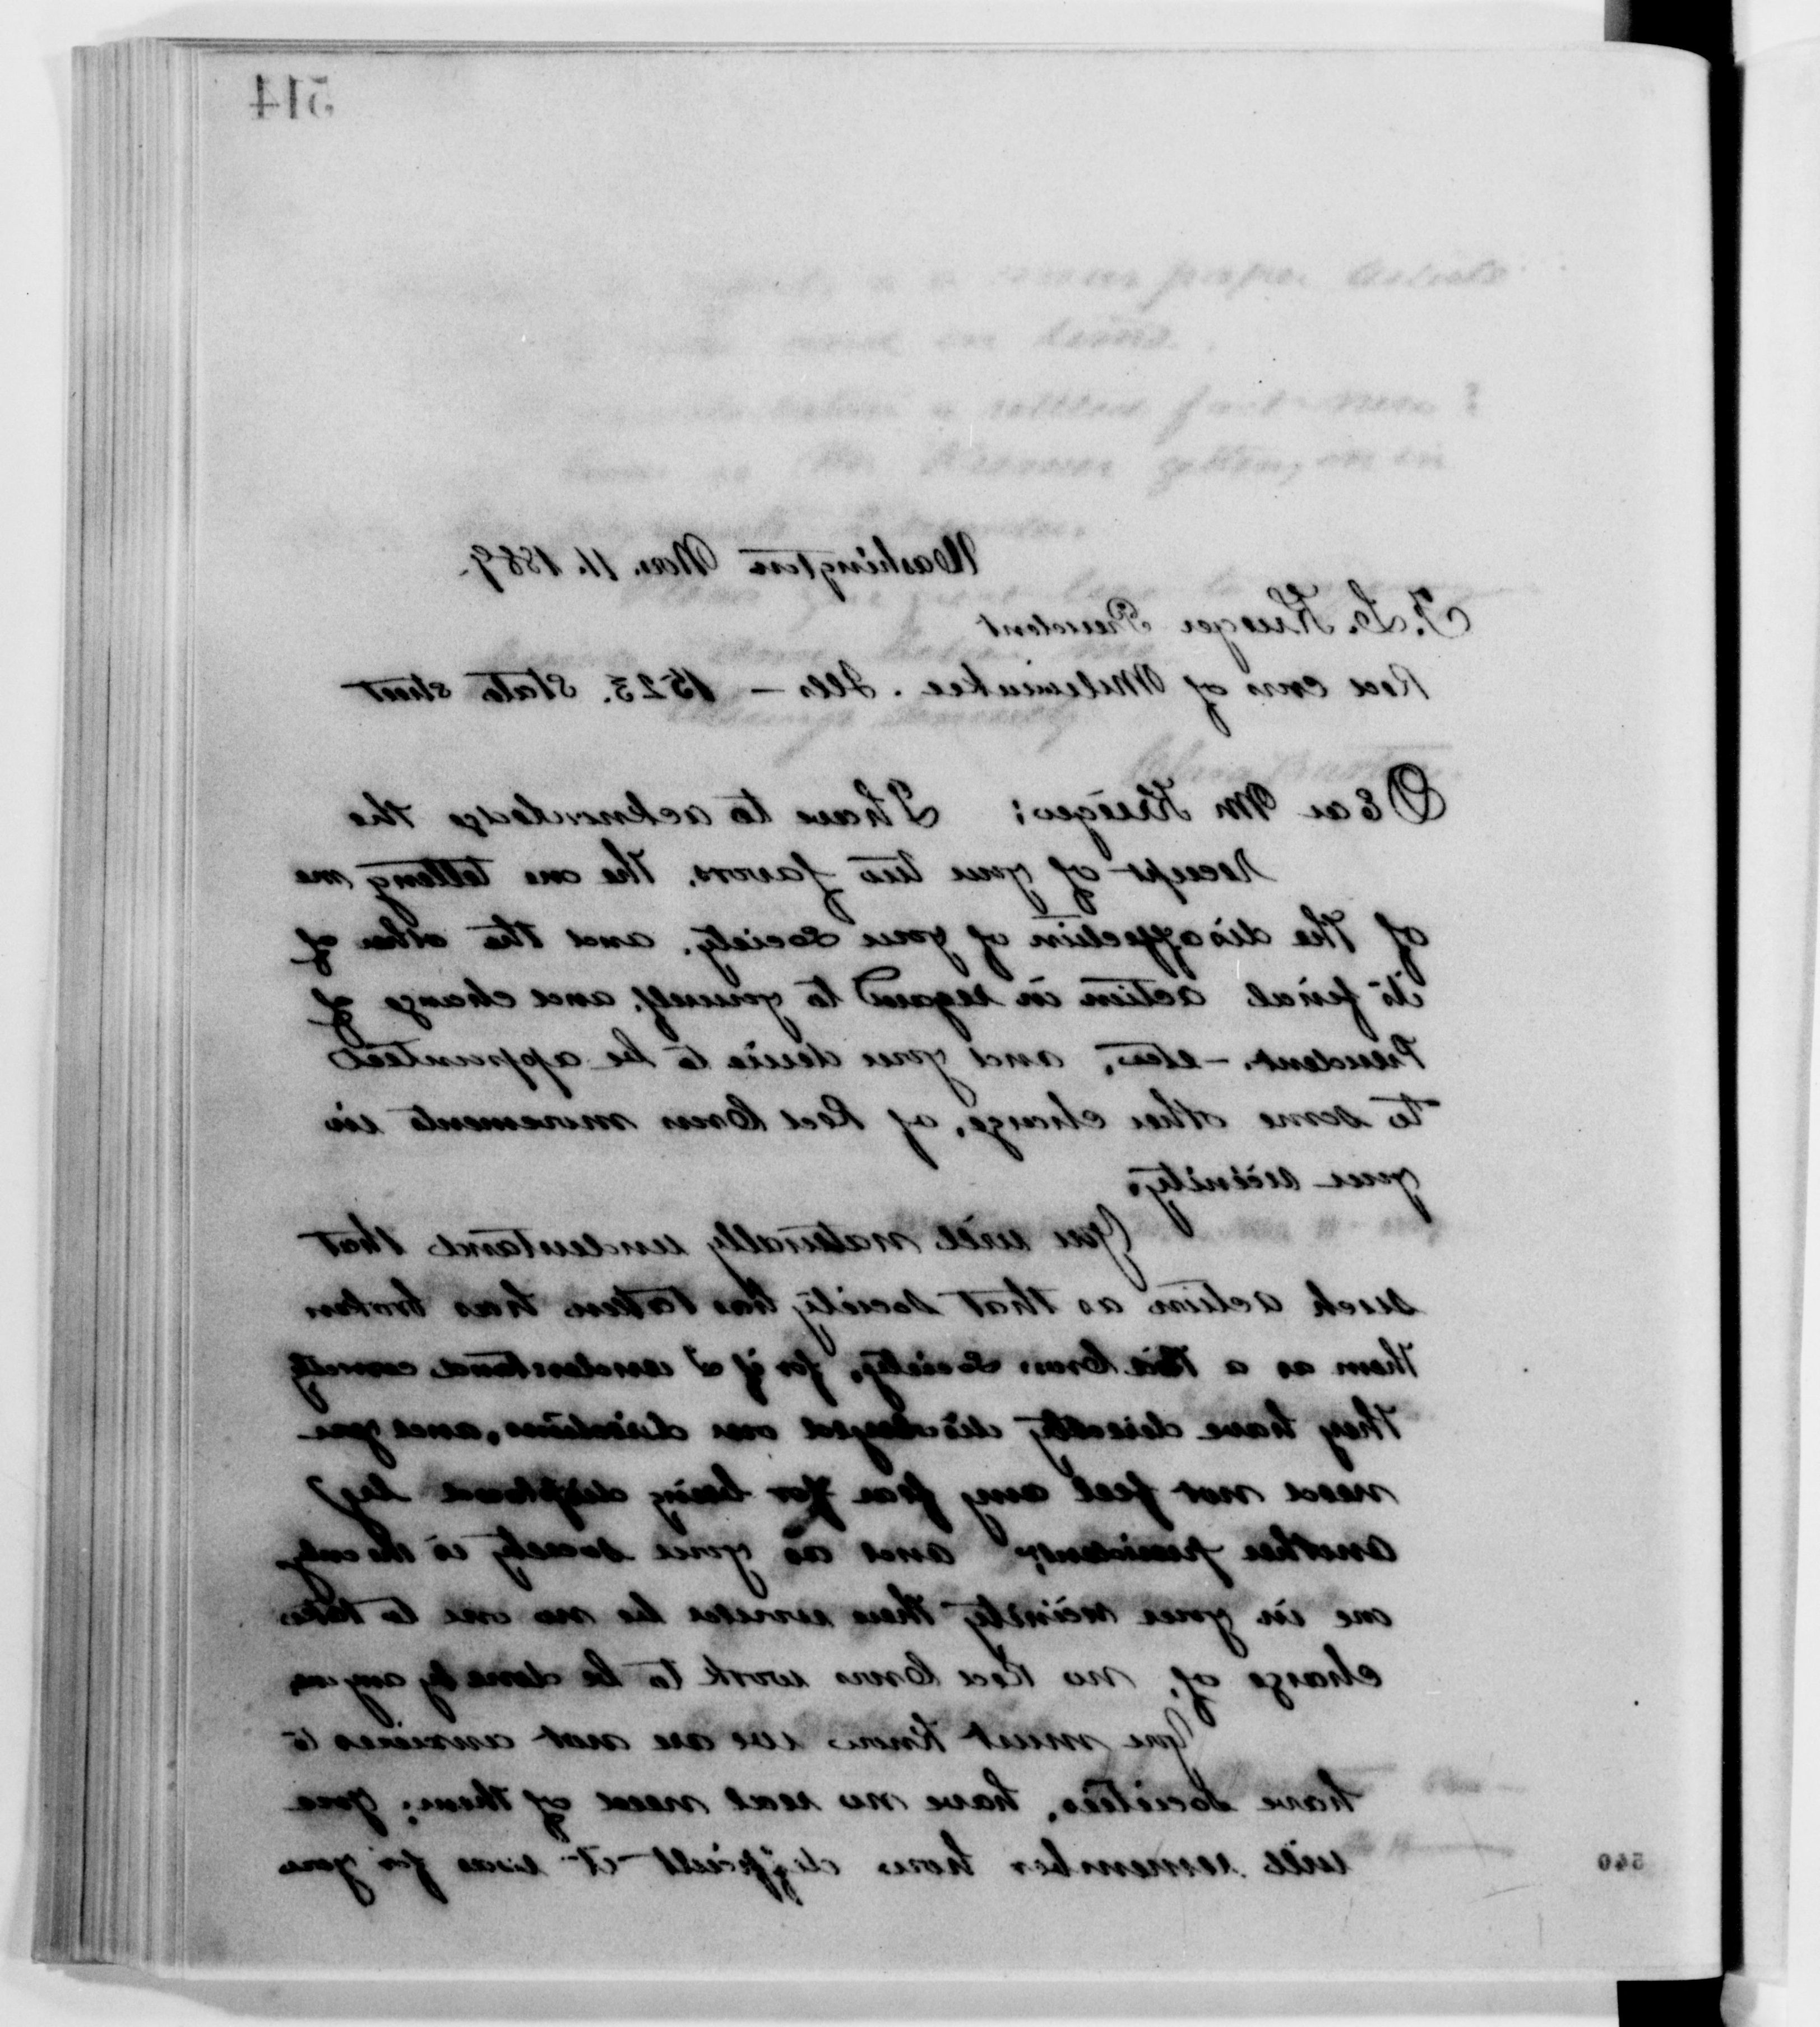 514
Washington Nov. 11. 1889.
F. L. Krieger President
Red cross of Milwaukee. Ills — 1523. State street
DEar Mr Krieger; I have to acknowledge the
receipt of your two favors. the one telling me
of the disaffection of your society. and the other of
its final action in regard to yourself, and change of
President. – etc, and your desire to be appointed
to some other charge, of Red Cross movements in
your vicinity.
You will naturally understand that
such action as that society has taken has broken
them as a Red Cross Society, for if I understand correctly
they have directly disobeyed our directions, and you
need not feel any fear for being displaced by
another president; and as your society is the only
one in your vicinity there would be no one to take
charge of, no Red Cross work to be done by anyone
You must know we are not anxious to
have societies, have no real need of them; you
will remember how difficult it was for you
540